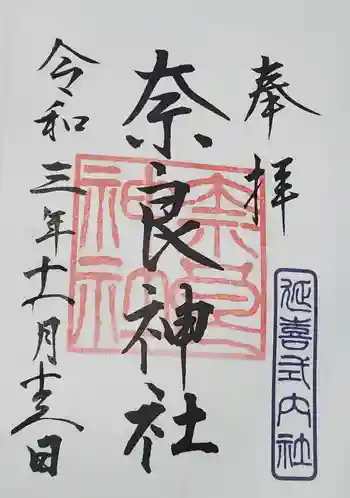 奉拝
延喜式内社
奈良神社
奈良
神社
令和三年 月 日